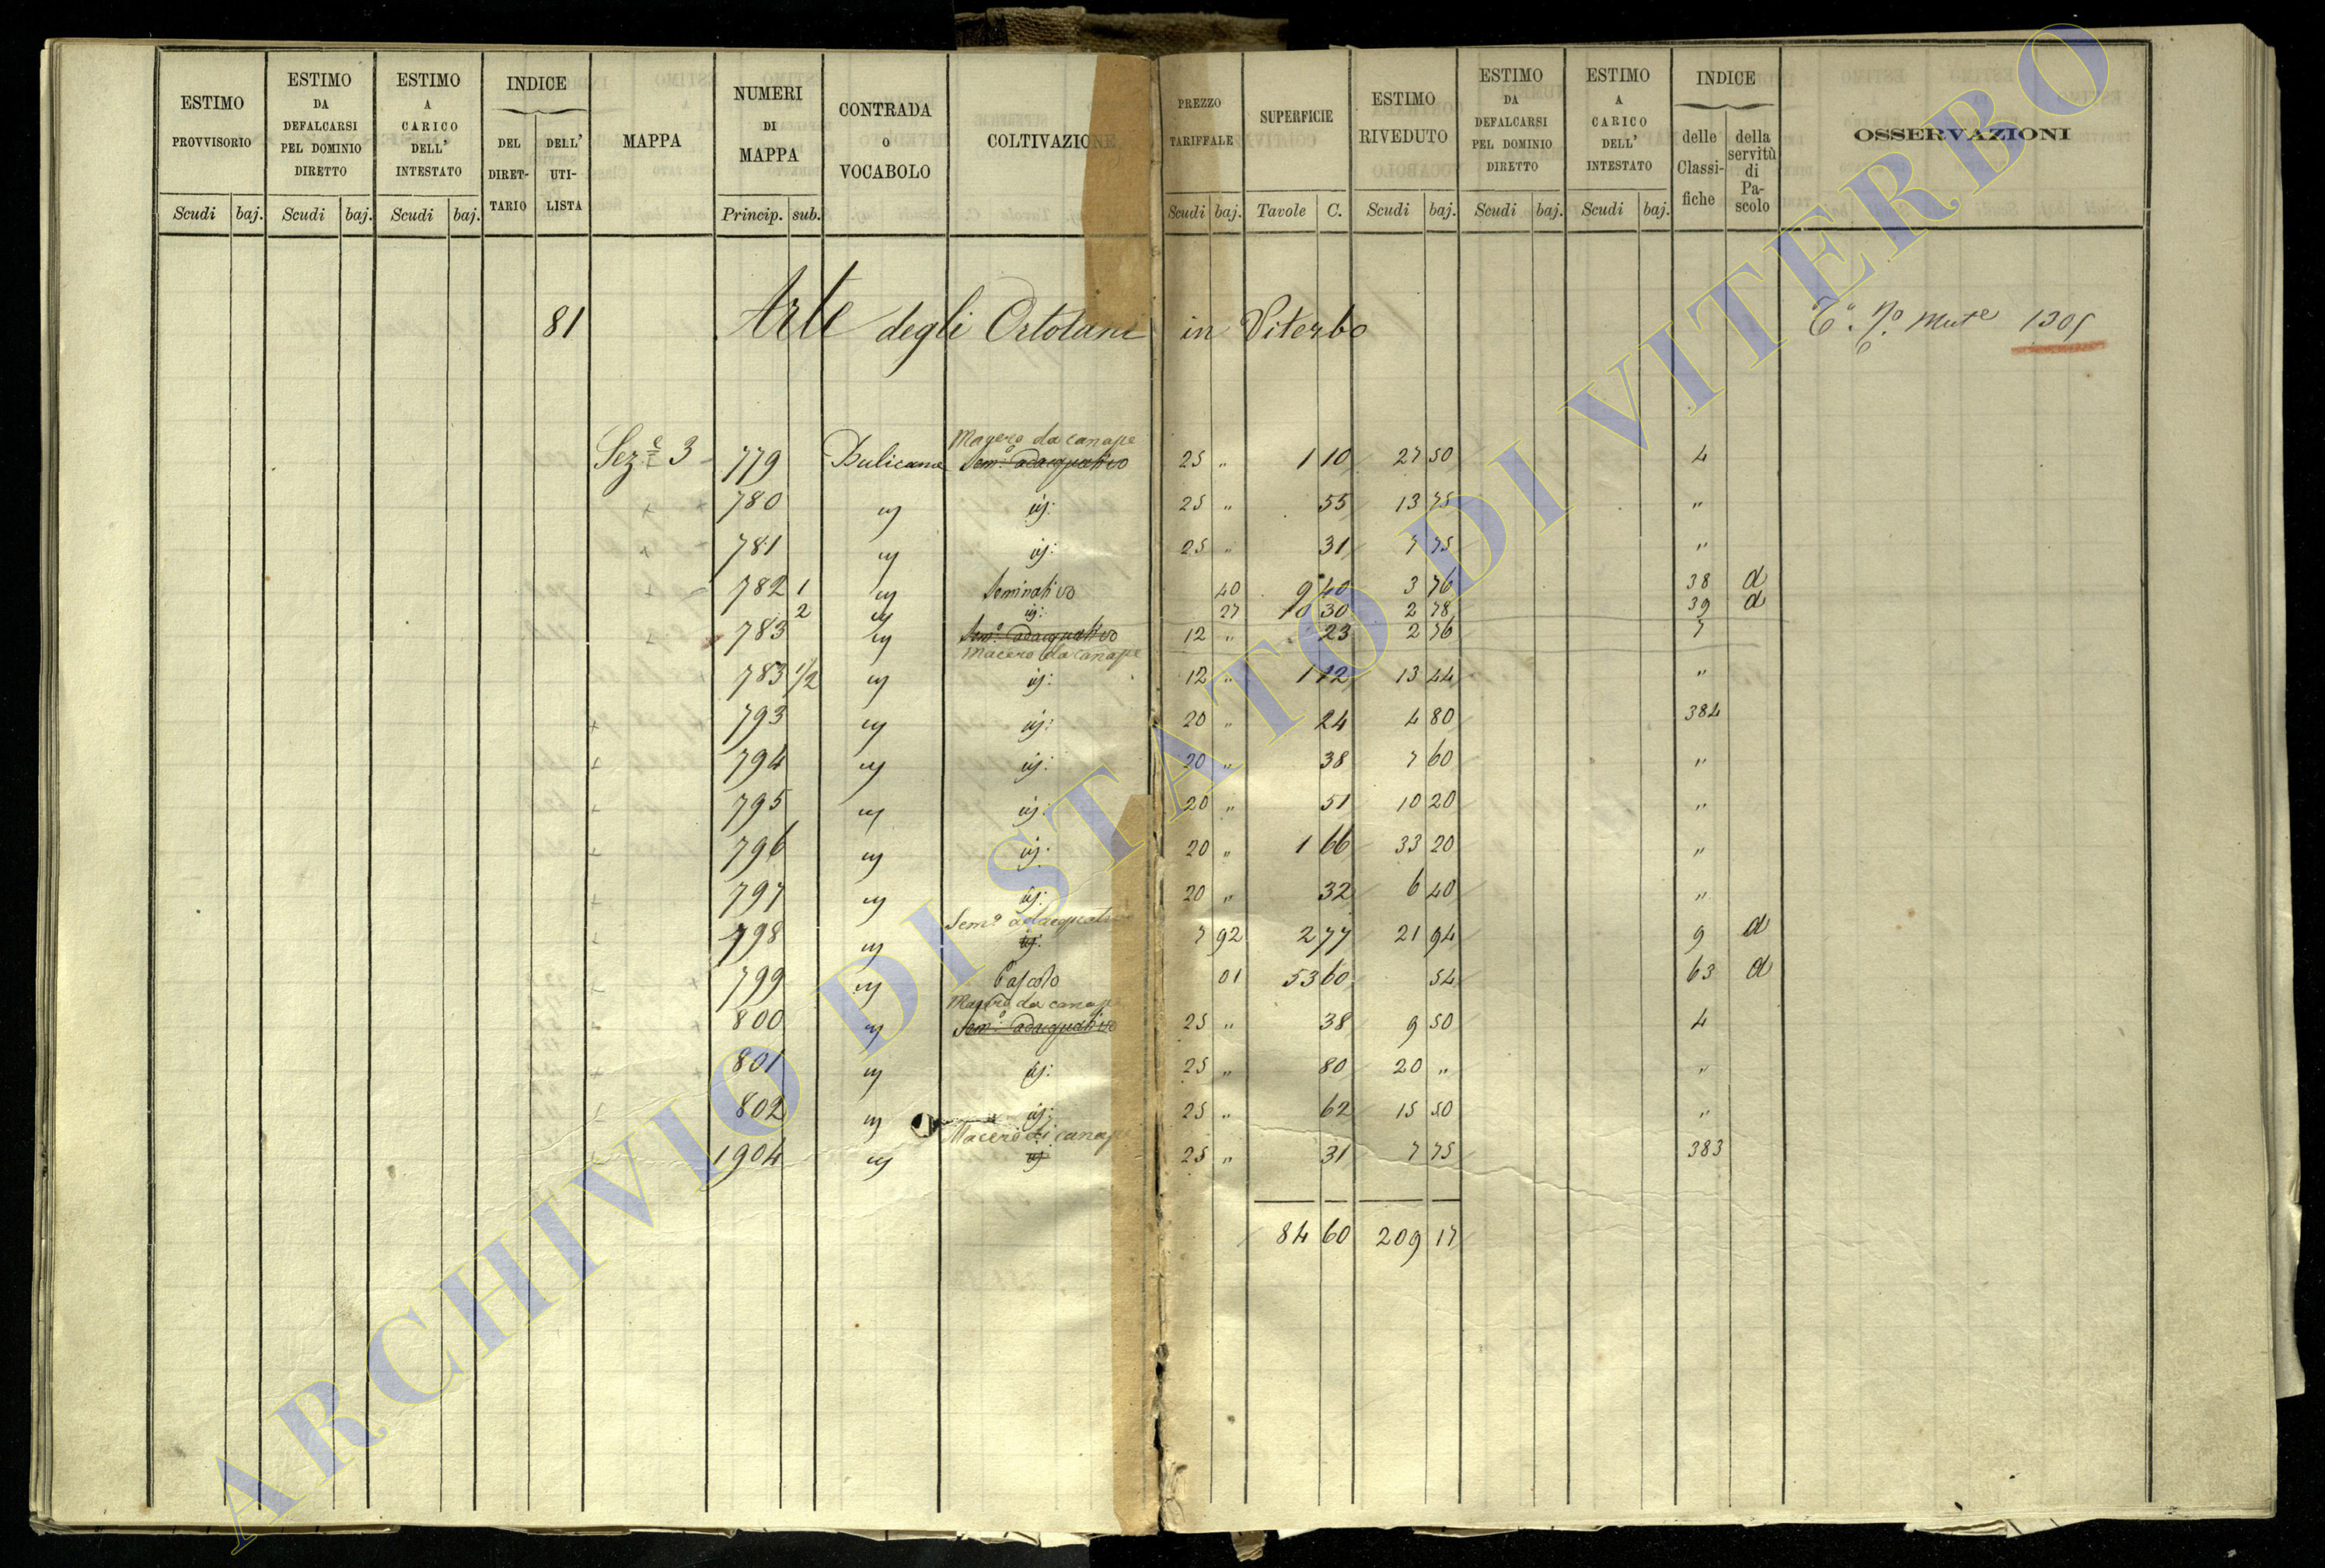 ESTIMO PROVVISORIO
Scudi baj.
ESTIMO DA DEFALCARSI PEL DOMINIO DIRETTO
Scudi baj.
ESTIMO A CARICO DELL' INTESTATO
Scudi baj.
INDICE
DEL DIRET-TARIO
DELL' UTI-LISTA
MAPPA
NUMERI DI MAPPA
Princip. sub.
CONTRADA o VOCABOLO
COLTIVAZIONE
PREZZO TARIFFALE
Scudi baj.
SUPERFICIE
Tavole C.
ESTIMO RIVEDUTO
Scudi baj.
ESTIMO DA DEFALCARSI PEL DOMINIO DIRETTO
Scudi baj.
ESTIMO A CARICO DELL' INTESTATO
Scudi baj.
INDICE
delle Classi-fiche
della servitù di Pa-scolo
OSSERVAZIONI
81 Arte degli Ortolani in Viterbo
1305
Magero da canape
Sez.e 3 779 Bulicame Sem.o adacquativo 25 " 1 10 27 50 4
780 id: 25 " 55 13 75 "
781 id: 25 " 31 7 75 "
782 1 Seminativo 40 9 40 3 76 38 d
2 id: 27 10 30 2 78 39 d
783 Sem.o adacquativo 12 " 23 2 76 7
Macero da canape
783 1/2 id: 12 " 1 12 13 44 "
793 id: 20 " 24 4 80 384
794 id: 20 " 38 7 60 "
795 id: 20 " 51 10 20 "
796 id: 20 " 1 66 33 20 "
797 id: 20 " 32 6 40 "
Sem.o adacquativo
798 id: 7 92 2 77 21 94 9 d
799 Pascolo 01 53 60 54 63 d
Magero da canape
800 Sem.o adacquativo 25 " 38 9 50 4
801 id: 25 " 80 20 " "
802 id: 25 " 62 15 50 "
Macero di canape
1904 id 25 " 31 7 75 383
84 60 209 17
ARCHIVIO DI STATO DI VITERBO